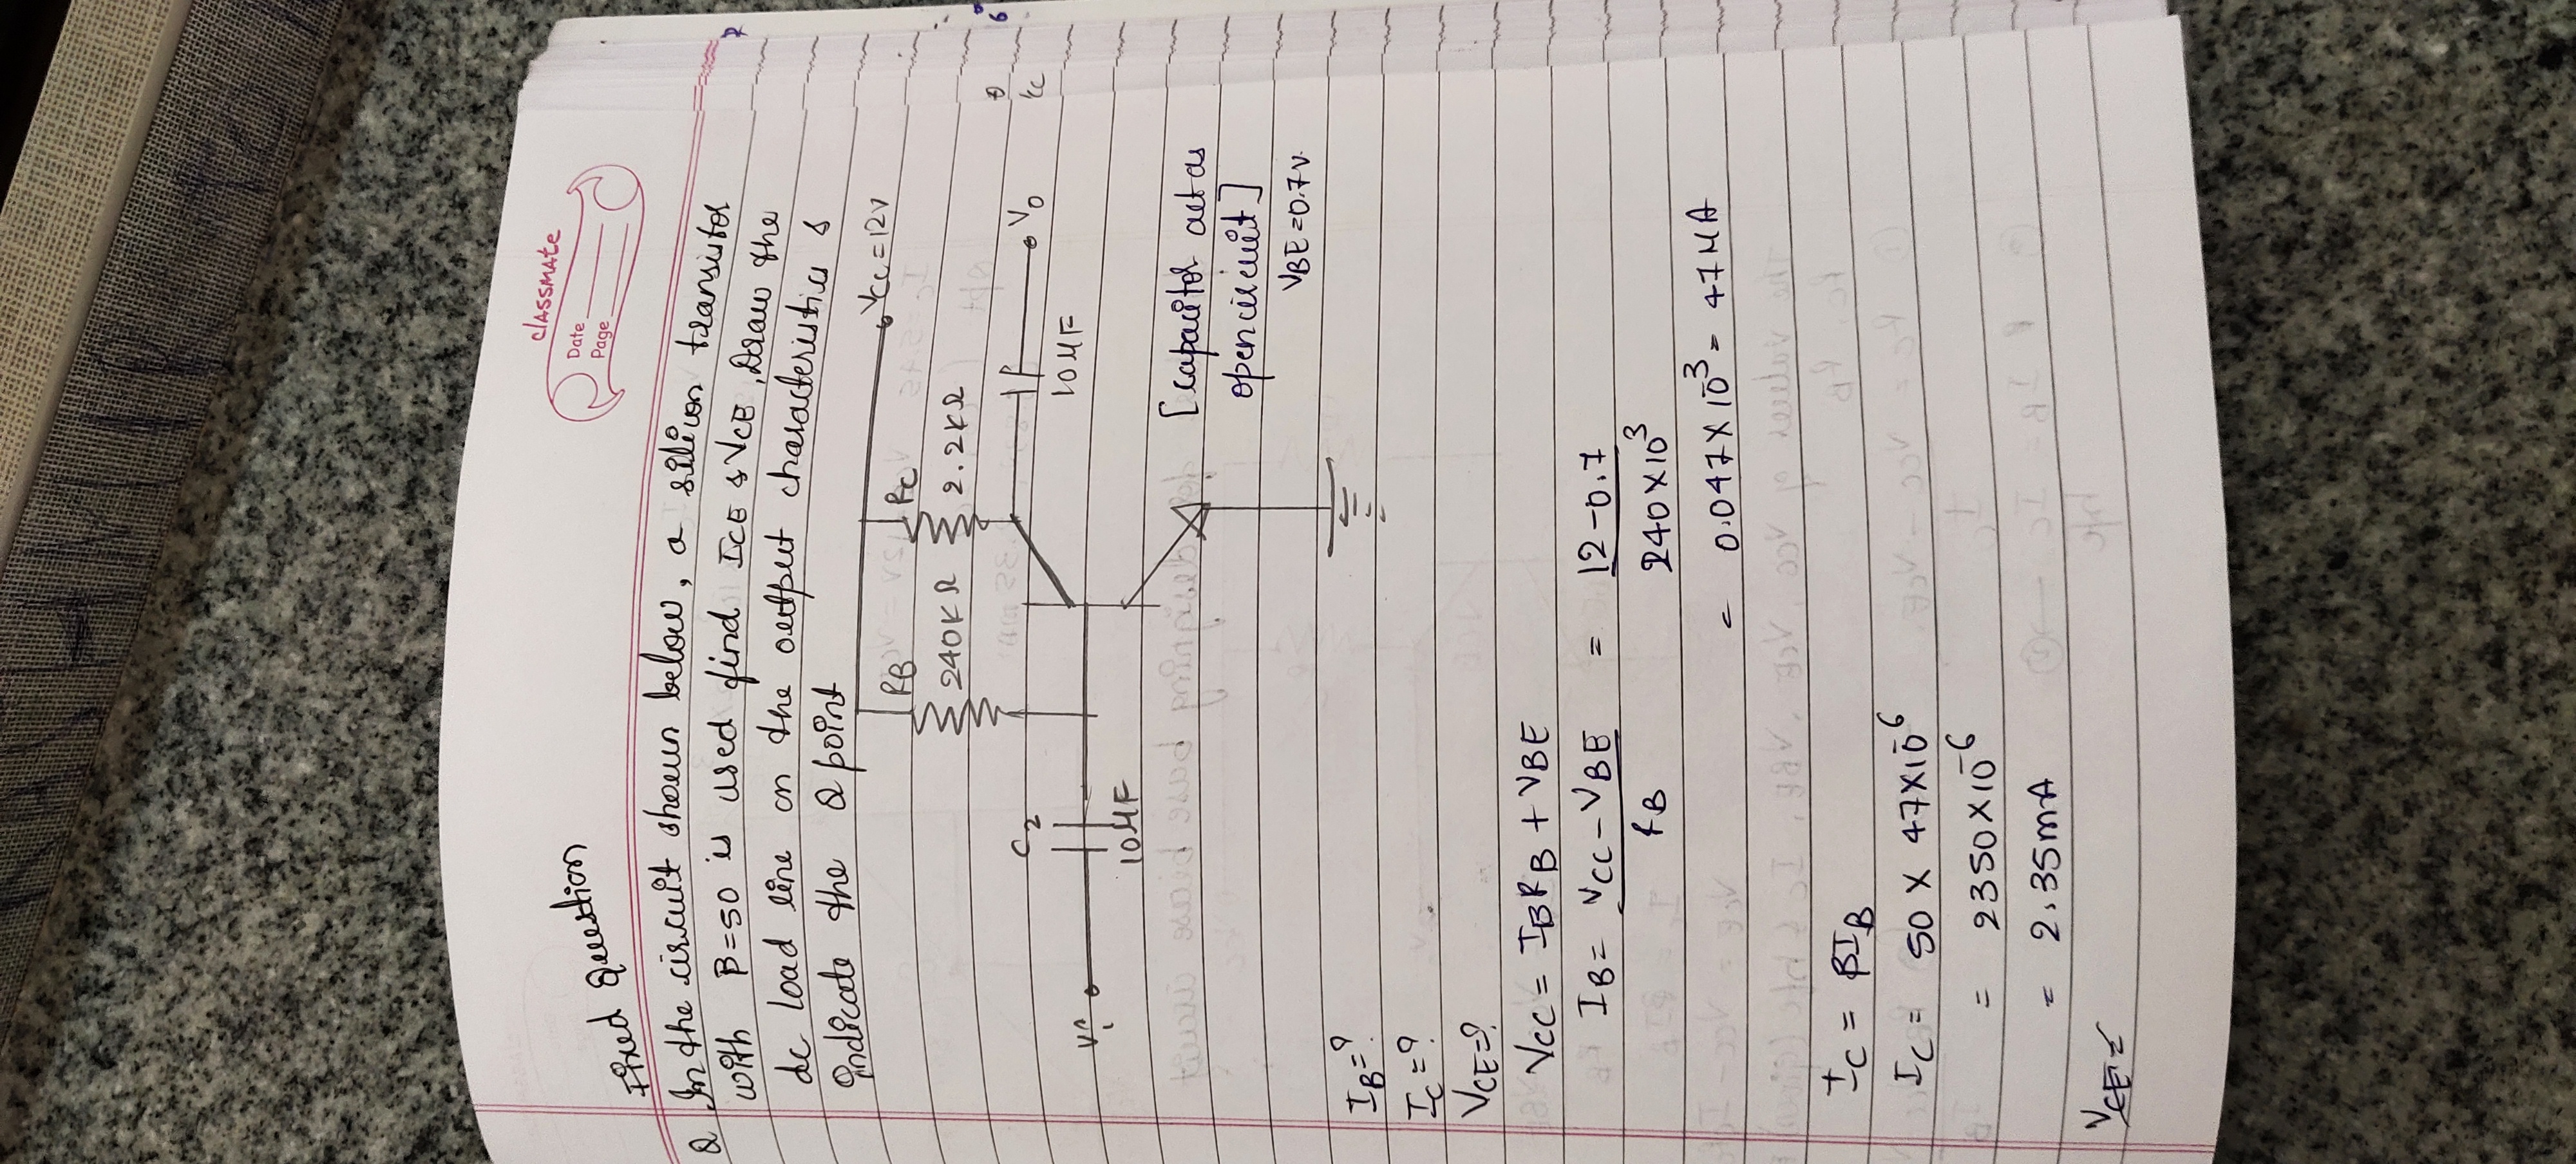 classmate
Date
Page
Fixed Question
Q In the circuit shown below, a silicon transistor
with β=50 is used find ICE & VCE, Draw the
dc load line on the output characteristics &
indicate the Q point
VCC=12V
RB
RC
240KΩ
2.2KΩ
C2
V0
10μF
Vi
10μF
[capacitor act as
open circuit]
VBE=0.7V.
IB=?
IC=?
VCE=?
VCC = IBRB + VBE
IB= VCC-VBE = 12-0.7
RB 240×10^3
= 0.047×10^-3 = 47μA
IC = βIB
IC = 50 × 47×10^-6
= 2350×10^-6
= 2.35mA
VCE =